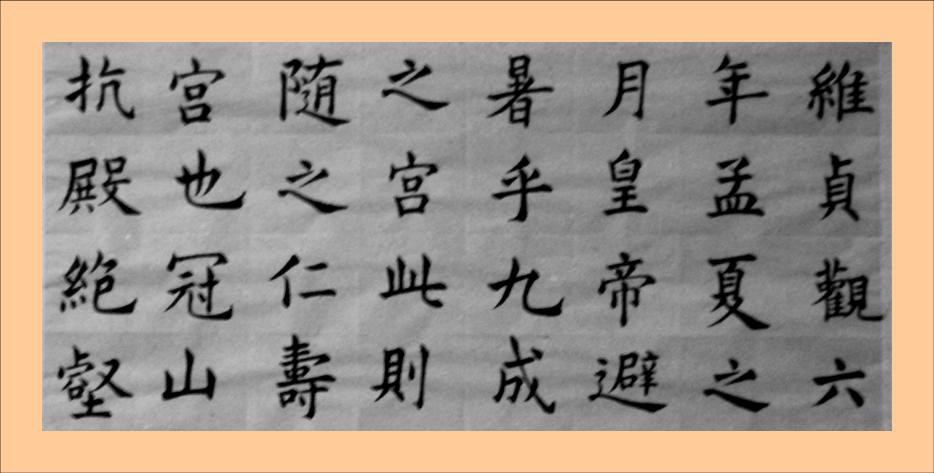 維貞觀六
年孟夏之
月皇帝避
暑乎九成
之宮此則
隨之仁壽
宮也冠山
抗殿絕壑